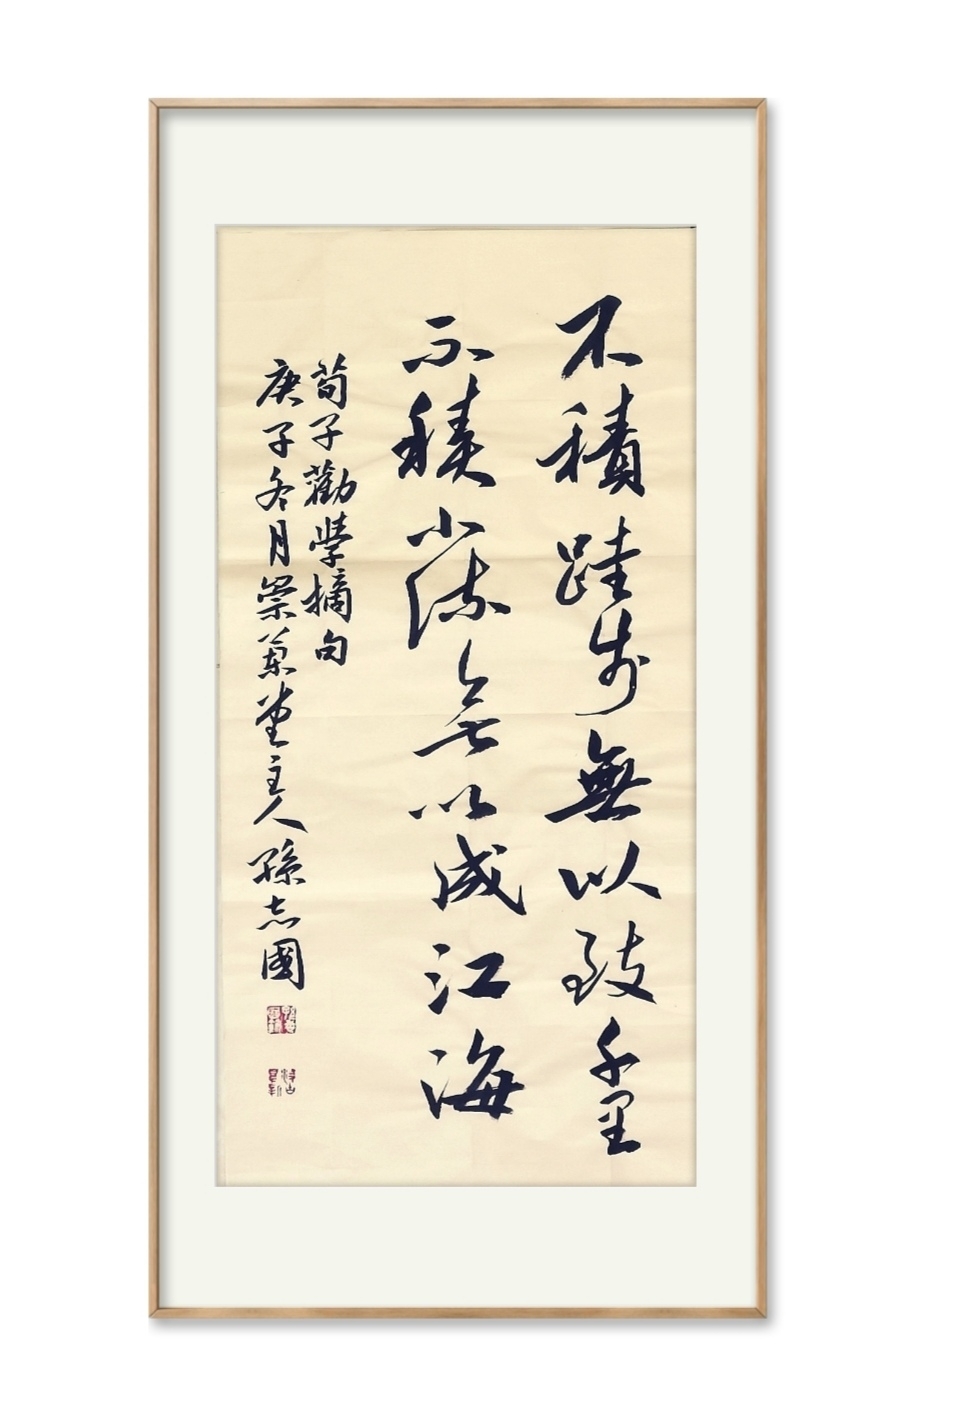 不積跬步無以致千里
不積小流無以成江海
荀子勸學摘句
庚子冬月崇堂主人孫志國